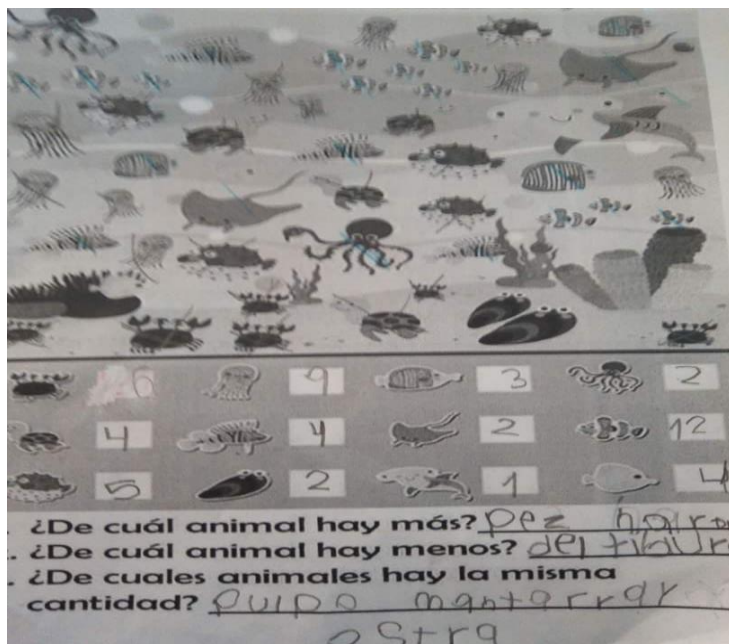 6 9 3 2
4 4 2 12
5 2 1 4
. ¿De cuál animal hay más? pez
. ¿De cuál animal hay menos?
. ¿De cuales animales hay la misma
cantidad? pulpo mantarrar
ostra